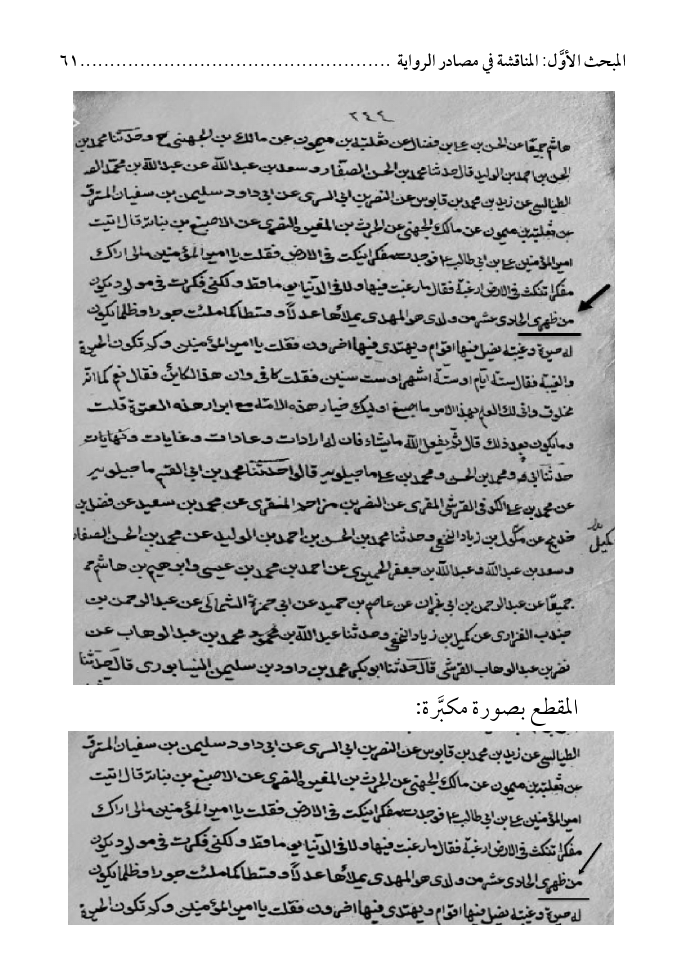 المبحث الأوَّل: المناقشة في مصادر الرواية ....................................................٦١
٢٤٤
هاشم جميعا عن الحسن بن علي بن فضال عن ثعلبة بن ميمون عن مالك بن الجهني ح وحدثنا محمد بن
الحسن بن احمد بن الوليد قال حدثنا محمد بن الحسن الصفار وسعد بن عبد الله عن عبد الله بن محمد
الطيالسي عن زيد بن محمد بن قابوس عن النضر بن ابي السري عن ابي داود سليمن بن سفيان المسترق
عن ثعلبة بن ميمون عن مالك الجهني عن الحرث بن المغيرة النصري عن الاصبغ بن نباته قال اتيت
امير المؤمنين علي بن ابي طالب فوجدته مفكرا ينكت في الارض فقلت يا امير المؤمنين مالي اراك
مفكرا تنكت في الارض ارغبة فقال ما رغبت فيها ولا في الدنيا يوما قط ولكني فكرت في مولود يكون
من ظهري الحادي عشر من ولدي هو المهدي يملاها عدلا وقسطا كما ملئت جورا وظلما يكون
له حيرة وغيبة يضل فيها اقوام ويهتدي فيها اخرون فقلت يا امير المؤمنين وكم تكون الحيرة
والغيبة فقال ستة ايام او ستة اشهر او ست سنين فقلت وان هذا لكاين فقال نعم كما انه
مخلوق واني لك بالعلم بهذا الامر يا اصبغ اوليك خيار هذه الامة مع ابرار هذه العترة قلت
وما يكون بعد ذلك قال ثم يفعل الله ما يشاء فان له ارادات وغايات ونهايات
حدثنا ابي ومحمد بن الحسن ومحمد بن علي ماجيلويه قالوا حدثنا محمد بن ابي القسم ماجيلويه
عن محمد بن علي الكوفي القرشي المقري عن نصر بن مزاحم المنقري عن محمد بن سعيد عن فضيل بن
خديج عن كميل بن زياد النخعي وحدثنا محمد بن الحسن بن احمد بن الوليد عن محمد بن الحسن الصفار
كميل
وسعد بن عبد الله وعبد الله بن جعفر الحميري عن احمد بن محمد بن عيسى وابرهيم بن هاشم
جميعا عن عبد الرحمن بن ابي نجران عن عاصم بن حميد عن ابي حمزة الثمالي عن عبد الرحمن بن
جندب الفزاري عن كميل بن زياد النخعي وحدثنا عبد الله بن محمد بن عبد الوهاب عن
نصر بن عبد الوهاب القرشي قال حدثنا ابو بكر محمد بن داود بن سليمن النيسابوري قال حدثنا
المقطع بصورة مكبَّرة:
الطيالسي عن زيد بن محمد بن قابوس عن النضر بن ابي السري عن ابي داود سليمن بن سفيان المسترق
عن ثعلبة بن ميمون عن مالك الجهني عن الحرث بن المغيرة النصري عن الاصبغ بن نباته قال اتيت
امير المؤمنين علي بن ابي طالب فوجدته مفكرا ينكت في الارض فقلت يا امير المؤمنين مالي اراك
مفكرا تنكت في الارض ارغبة فقال ما رغبت فيها ولا في الدنيا يوما قط ولكني فكرت في مولود يكون
من ظهري الحادي عشر من ولدي هو المهدي يملاها عدلا وقسطا كما ملئت جورا وظلما يكون
له حيرة وغيبة يضل فيها اقوام ويهتدي فيها اخرون فقلت يا امير المؤمنين وكم تكون الحيرة